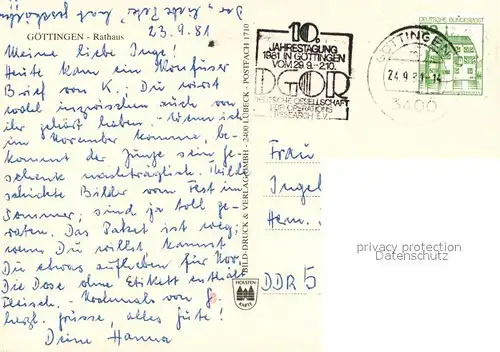 23.9.81
GÖTTINGEN - Rathaus
Meine liebe Inge!
Heute kam ein konfuser
Brief von K.; Du wirst
wohl inzwischen auch von
ihr gehört haben. - Wenn ich
im November komme, be-
kommt der Junge sein Ge-
schenk nachträglich. Hilde
schickte Bilder vom Fest im
Sommer; sind ja toll ge-
raten. Das Paket ist weg;
wenn Du willst kannst
Du etwas aufheben für Nov.
Die Dose ohne Etikett enthält
Fleisch. - Nochmals von
herzl. Grüsse, alles Gute!
Deine Hanna
BILD-DRUCK & VERLAG GMBH - 2400 LÜBECK - POSTFACH 1710
HOLSTEN
KARTE
10.
JAHRESTAGUNG
1981 IN GÖTTINGEN
VOM 29.9.-2.10.
DGOR
DEUTSCHE GESELLSCHAFT
FÜR OPERATIONS
RESEARCH E.V.
GÖTTINGEN
24.9.81-14
3400
DEUTSCHE BUNDESPOST
Frau
Ingeb
Herm.
DDR 5
privacy protection
Datenschutz